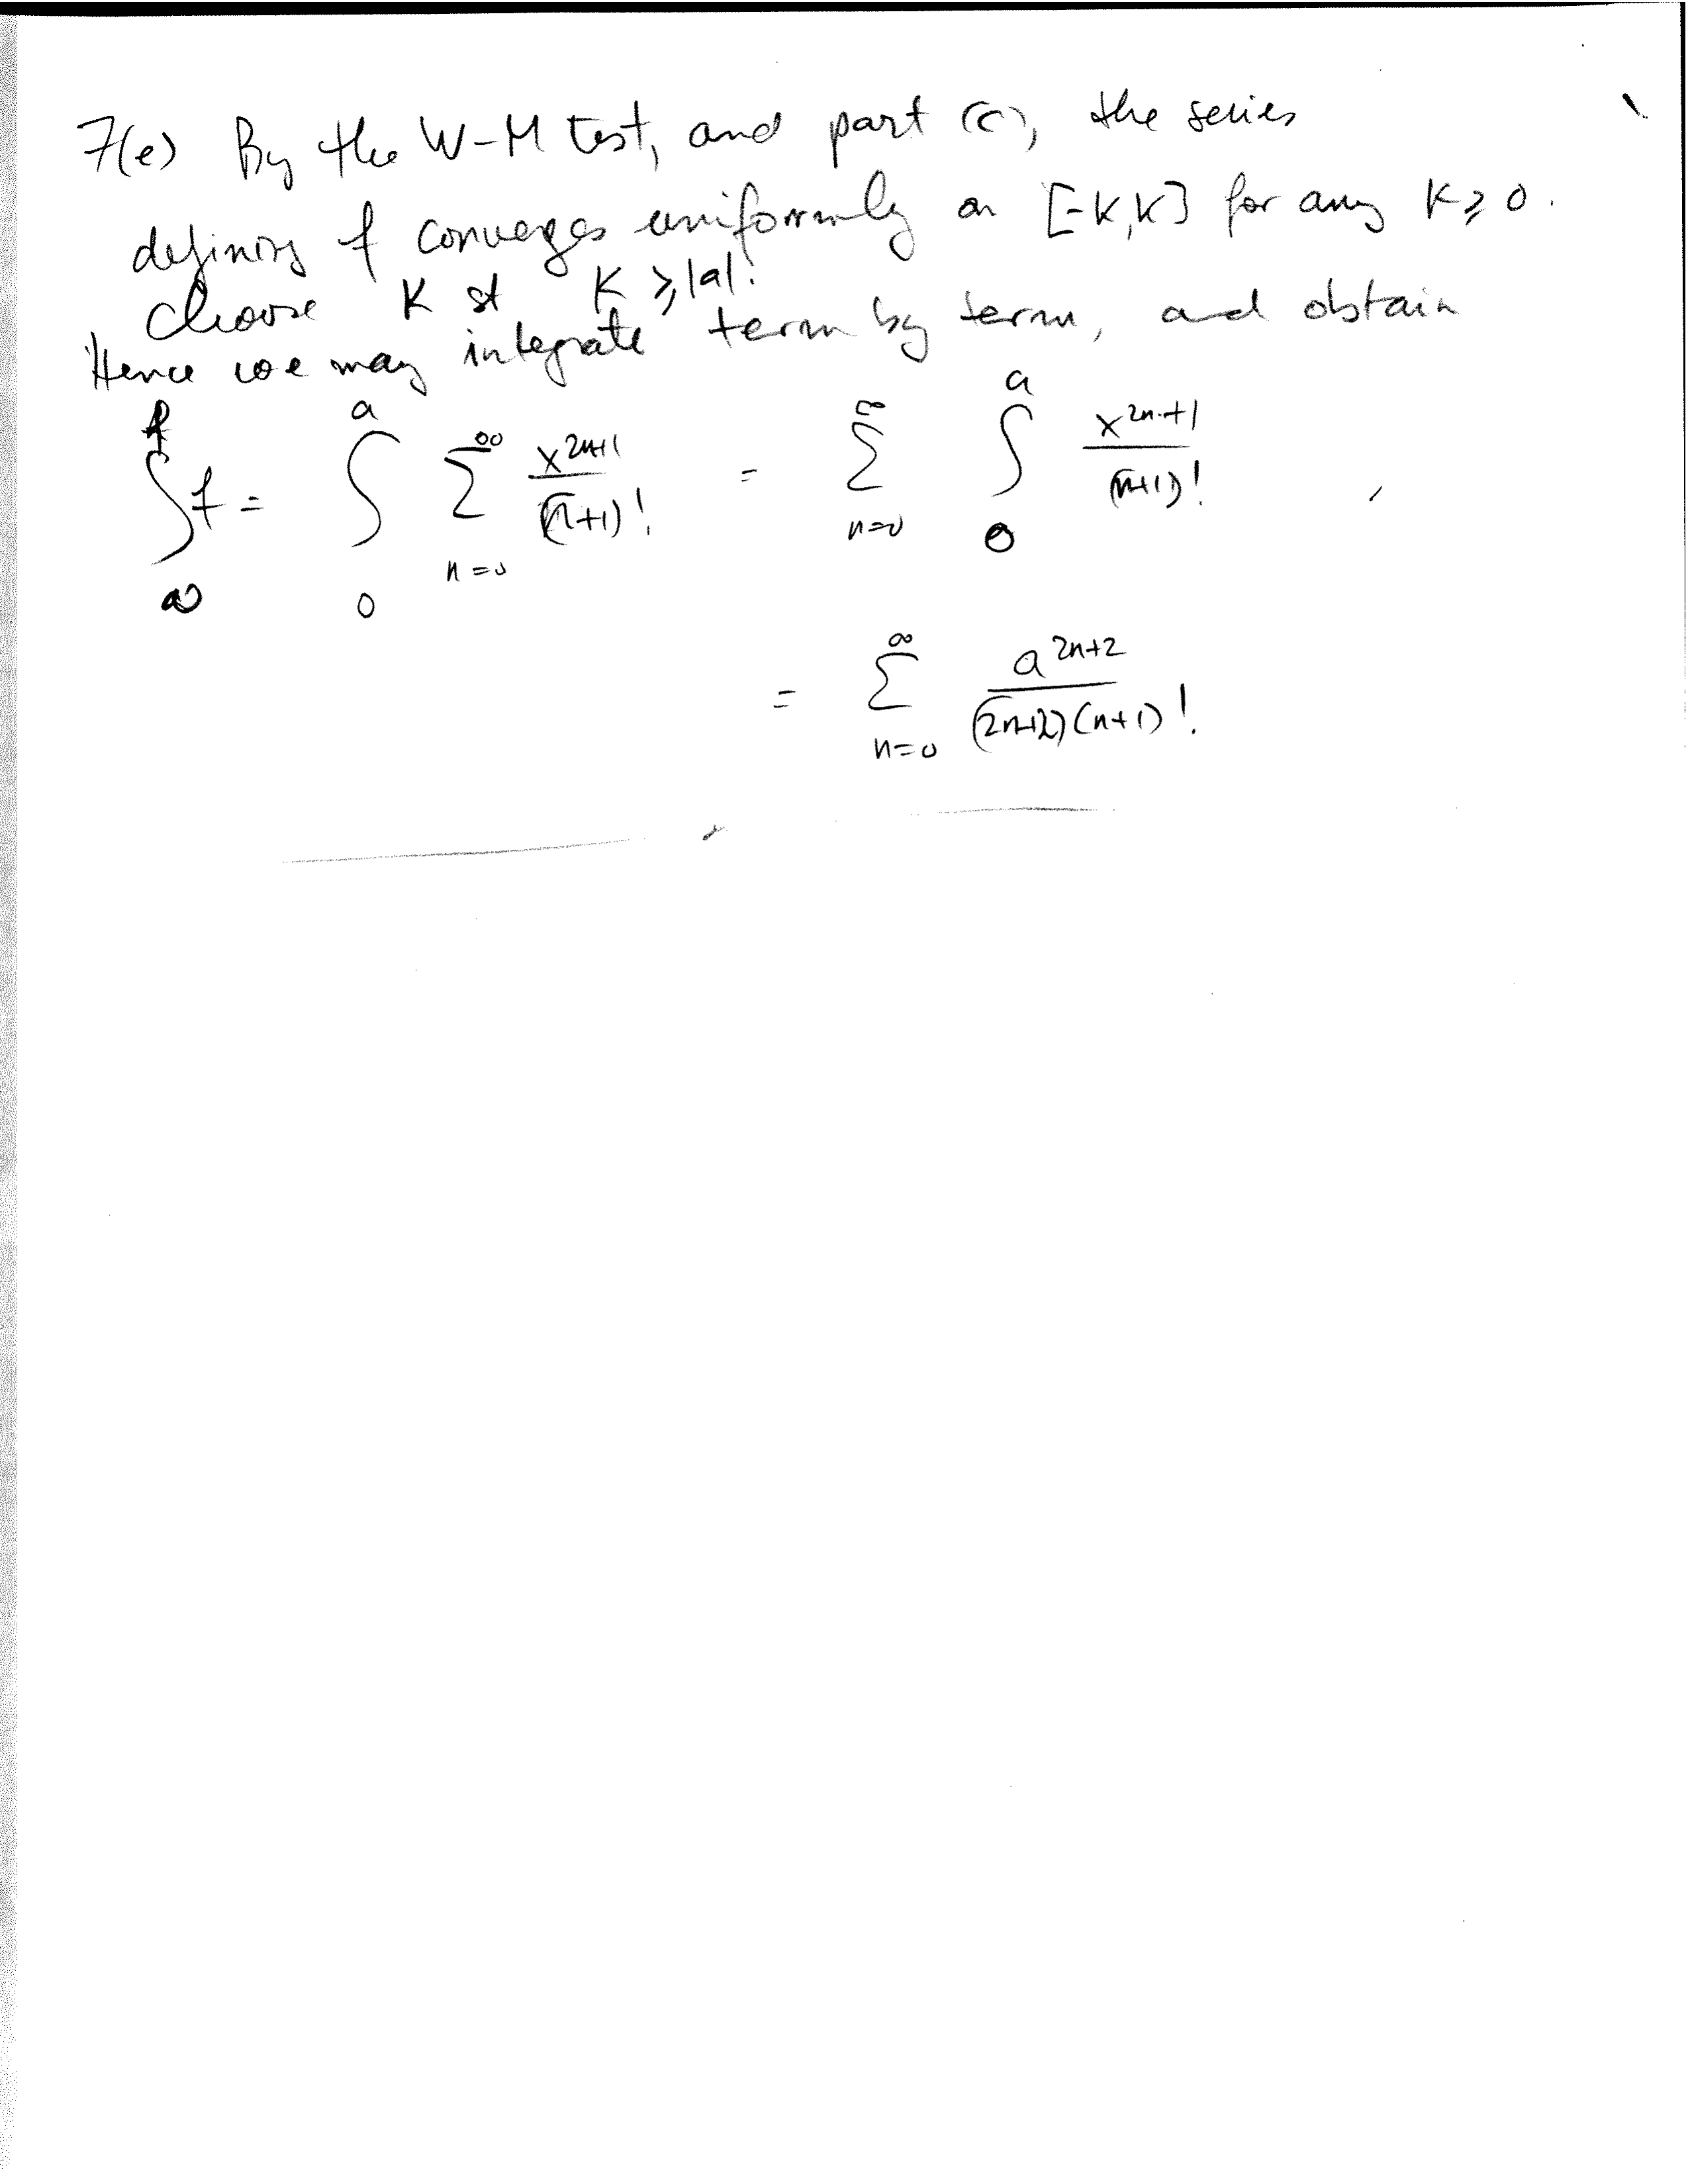 7(e) By the W-M test, and part (c), the series
defining f converges uniformly on [-K,K] for any K ≥ 0.
Choose K st K ≥ |a|.
Hence we may integrate term by term, and obtain
∫ f = ∫_0^a ∑_{n=0}^∞ x^{2n+1}/(n+1)! = ∑_{n=0}^∞ ∫_0^a x^{2n+1}/(n+1)!
= ∑_{n=0}^∞ a^{2n+2}/(2n+2)(n+1)!